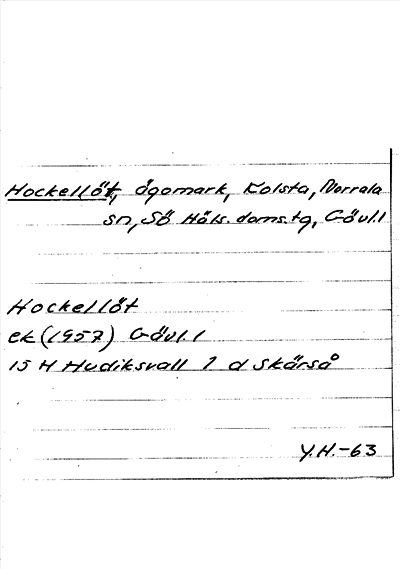 Hockellöt, ägomark, Kolsta, Norrala
sn, Sö Häls. doms.tg, Gävl.l
Hockellöt
ek (1957) Gävl.l
15 H Hudiksvall 7 d Skärså
Y.H.-63